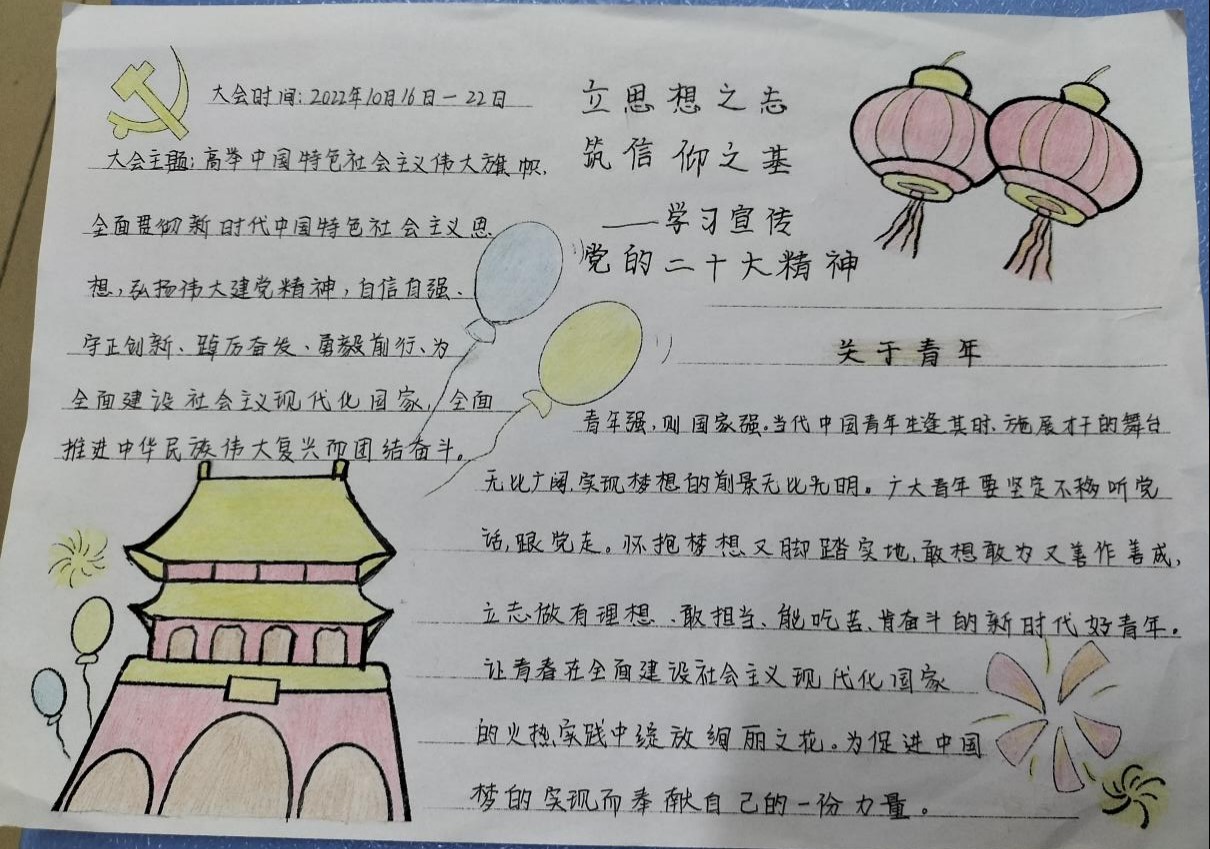 大会时间：2022年10月16日—22日
大会主题：高举中国特色社会主义伟大旗帜，
全面贯彻新时代中国特色社会主义思
想，弘扬伟大建党精神，自信自强、
守正创新、踔厉奋发、勇毅前行、为
全面建设社会主义现代化国家，全面
推进中华民族伟大复兴而团结奋斗。
立思想之志
筑信仰之基
——学习宣传
党的二十大精神
关于青年
青年强，则国家强。当代中国青年生逢其时，施展才干的舞台
无比广阔，实现梦想的前景无比光明。广大青年要坚定不移听党
话，跟党走。怀抱梦想又脚踏实地，敢想敢为又善作善成，
立志做有理想、敢担当、能吃苦、肯奋斗的新时代好青年。
让青春在全面建设社会主义现代化国家
的火热实践中绽放绚丽之花。为促进中国
梦的实现而奉献自己的一份力量。